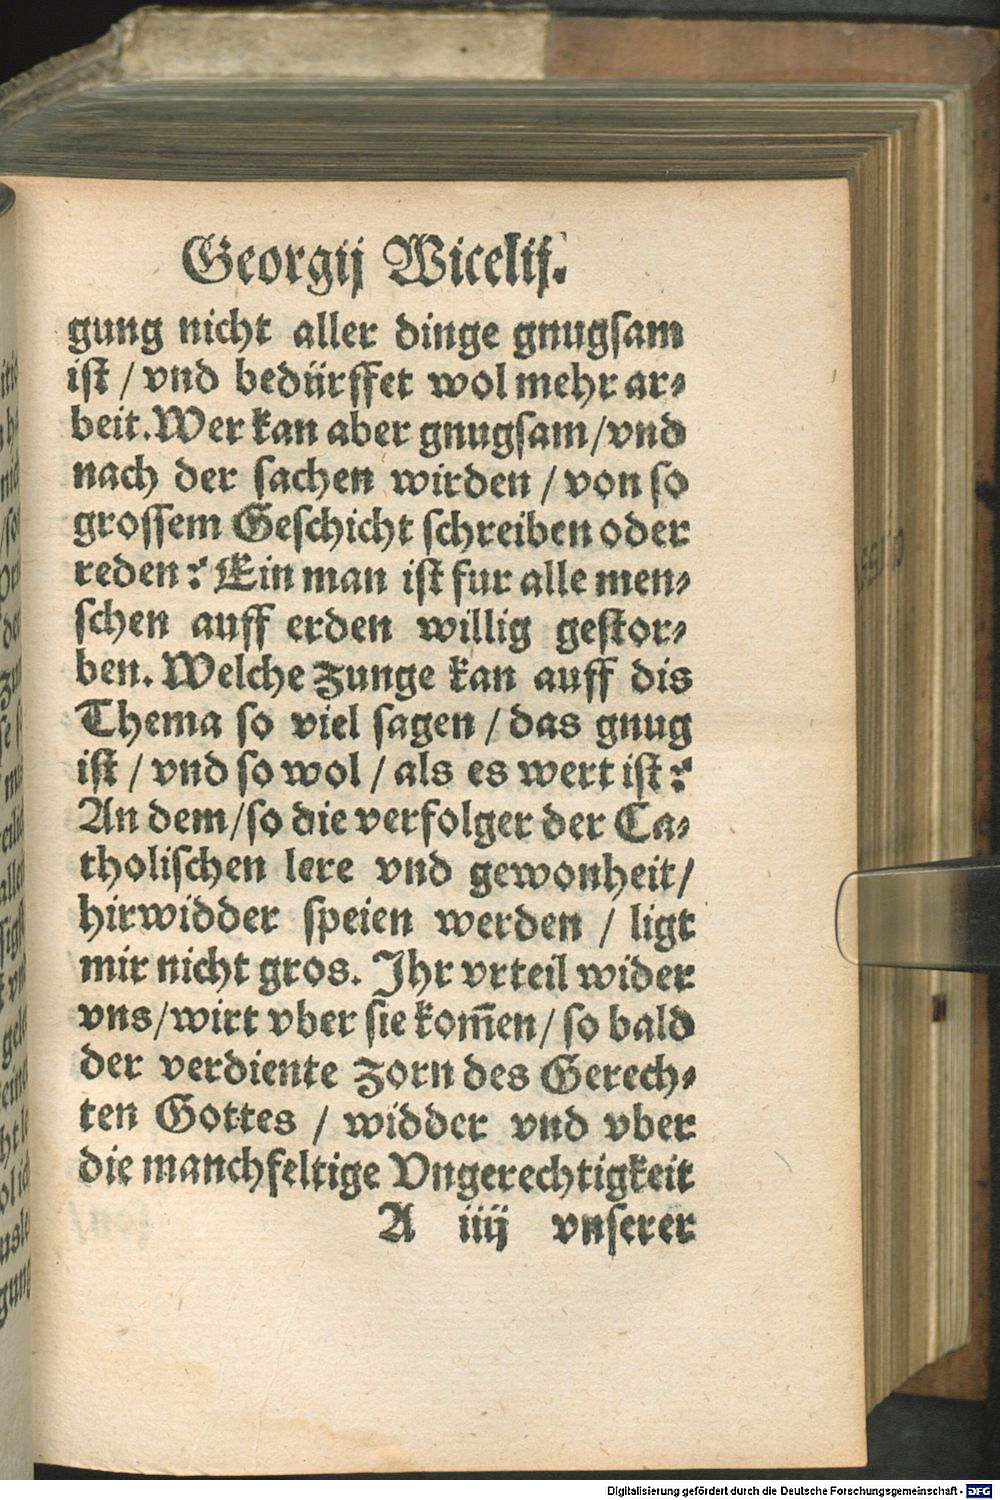 Georgij Wicelij.
gung nicht aller dinge gnugsam
ist / vnd bedürffet wol mehr ar⸗
beit. Wer kan aber gnugsam / vnd
nach der sachen wirden / von so
grossem Geschicht schreiben oder
reden? Ein man ist fur alle men⸗
schen auff erden willig gestor⸗
ben. Welche zunge kan auff dis
Thema so viel sagen / das gnug
ist / vnd so wol / als es wert ist?
An dem / so die verfolger der Ca⸗
tholischen lere vnd gewonheit /
hirwidder speien werden / ligt
mir nicht gros. Ihr vrteil wider
vns / wirt vber sie kom̃en / so bald
der verdiente zorn des Gerech⸗
ten Gottes / widder vnd vber
die manchfeltige Vngerechtigkeit
A iiij vnserer
Digitalisierung gefördert durch die Deutsche Forschungsgemeinschaft - DFG